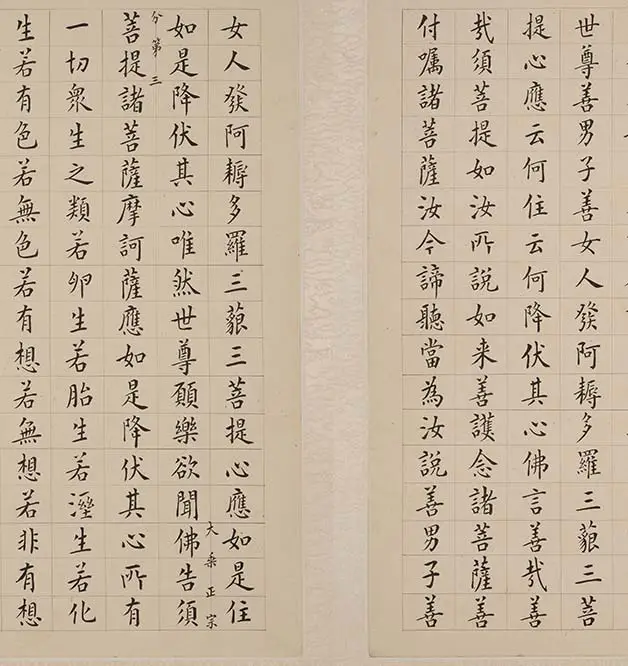 世尊善男子善女人發阿耨多羅三藐三菩
提心應云何住云何降伏其心佛言善哉善
哉須菩提如汝所說如来善護念諸菩薩善
付囑諸菩薩汝今諦聽當為汝說善男子善
女人發阿耨多羅三藐三菩提心應如是住
大乗正宗
如是降伏其心唯然世尊願樂欲聞佛告須
分第三
菩提諸菩薩摩訶薩應如是降伏其心所有
一切衆生之類若卵生若胎生若溼生若化
生若有色若無色若有想若無想若非有想